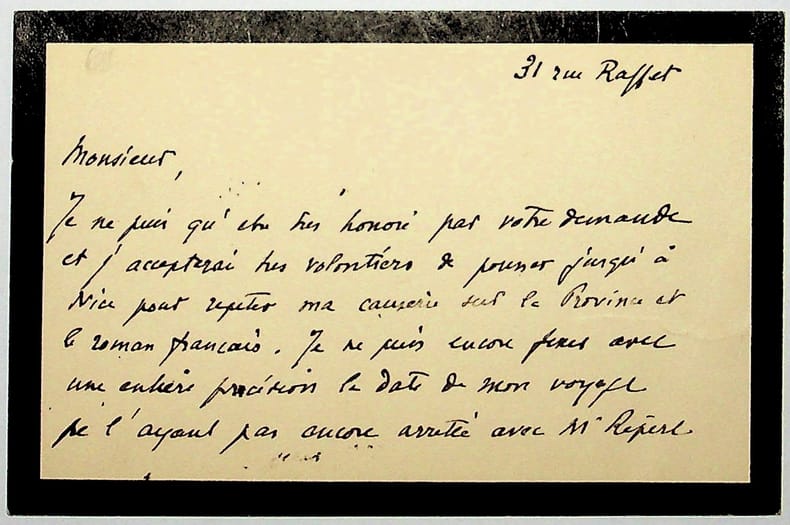 31 rue Raffet
Monsieur,
Je ne puis qu'etre très honoré par votre demande
et j'accepterai tres volontiers de pousser jusqu'à
Nice pour repeter ma causerie sur la Province et
le roman français. Je ne puis encore fixer avec
une entière précision la date de mon voyage
ne l'ayant pas encore arretée avec Mr